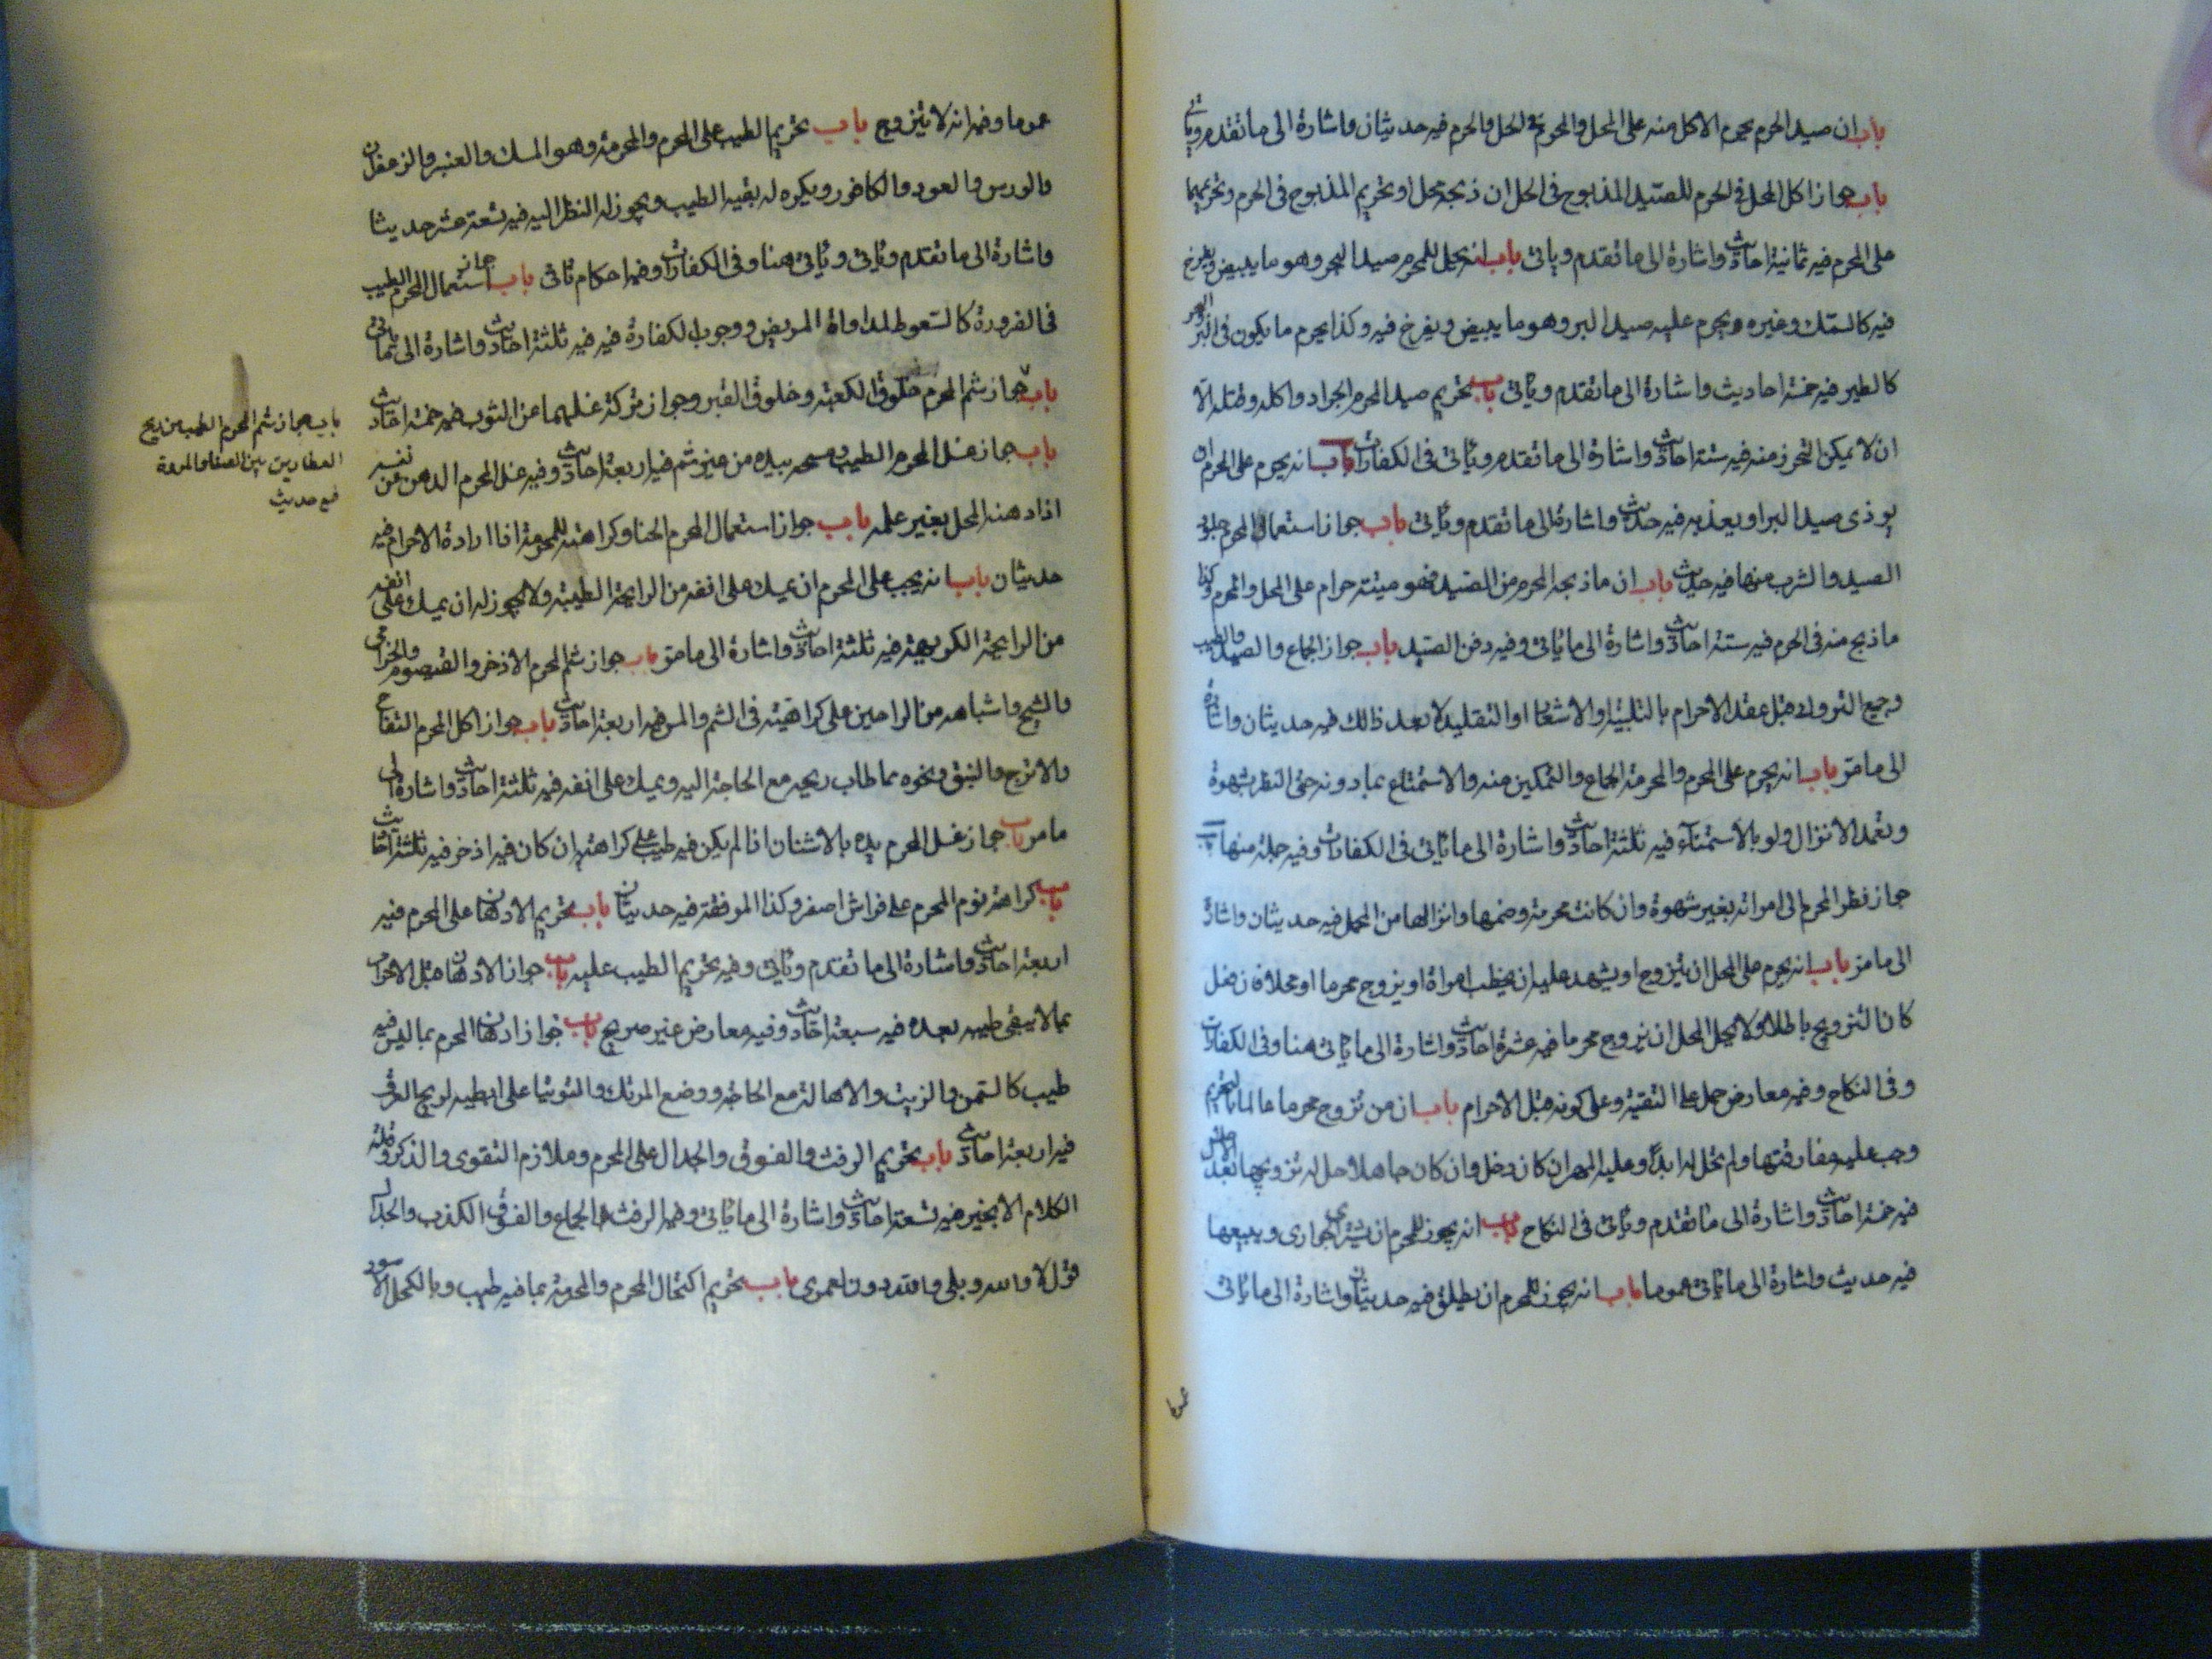 باب ان صيد الحرم يحرم الاكل منه على المحل والمحرم في الحل والحرم فيه حديثان واشارة الى ما تقدم وياتى
باب جواز اكل المحل في الحرم للصيد المذبوح في الحل ان ذبحه محل وتحريم المذبوح في الحرم وتحريمهما
على المحرم فيه ثمانية احاديث واشارة الى ما تقدم وياتى باب انه يحل للمحرم صيد البحر وهو ما يبيض ويفرخ
فيه كالسمك وغيره ويحرم عليه صيد البر وهو ما يبيض ويفرخ فيه وكذا يحرم ما يكون في البر والبحر
كالطير فيه خمسة احاديث واشارة الى ما تقدم وياتى باب تحريم صيد المحرم الجراد واكله وقتله الا
ان لا يمكن التحرز منه فيه ستة احاديث واشارة الى ما تقدم وياتى في الكفارات باب انه يحرم على المحرم ان
يوذى صيد البر او يعذبه فيه حديث واشارة الى ما تقدم وياتى باب جواز استعمال المحرم جلود
الصيد والشرب منها فيه حديث باب ان ما ذبحه المحرم من الصيد فهو ميتة حرام على المحل والمحرم وكذا
ما ذبح منه في الحرم فيه ستة احاديث واشارة الى ما ياتى وفيه دفن الصيد باب جواز الجماع والصيد والطيب
وجميع التروك قبل عقد الاحرام بالتلبية او الاشعار او التقليد لا بعد ذالك فيه حديثان واشارة
الى ما مر باب انه يحرم على المحرم والمحرمة الجماع والتمكين منه والاستمتاع بما دونه حتى النظر بشهوة
وتعمد الانزال ولو بالاستمناء فيه ثلثة احاديث واشارة الى ما ياتى في الكفارات وفيه جملة منها باب
جواز نظر المحرم الى امراته بغير شهوة وان كانت محرمة وضمها وانزالها من المحمل فيه حديثان واشارة
الى ما مر باب انه يحرم على المحل ان يتزوج او يشهد عليه او يخطب امراة او يزوج محرما او محلا فان فعل
كان التزويج باطلا ولا يحل للمحل ان يزوج محرما فيه عشرة احاديث واشارة الى ما ياتى هنا وفي الكفارات
وفي النكاح وفيه معارض حمل على التقية وعلى كونه قبل الاحرام باب ان من تزوج محرما عالما بالتحريم
وجب عليه مفارقتها ولم تحل له ابدا وعليه المهر ان كان دخل وان كان جاهلا حل له تزويجها بعد الاحلال
فيه خمسة احاديث واشارة الى ما تقدم وياتى في النكاح باب انه يجوز للمحرم ان يشترى الجوارى ويبيعها
فيه حديث واشارة الى ما ياتى عموما باب انه يجوز للمحرم ان يطلق فيه حديثان واشارة الى ما ياتى
عموما
عموما وفيه انه لا يتزوج باب تحريم الطيب على المحرم والمحرمة وهو المسك والعنبر والزعفران
والورس والعود والكافور ويكره له بقية الطيب ويجوز له النظر اليه فيه تسعة عشر حديثا
واشارة الى ما تقدم وياتى وياتى هنا وفي الكفارات وفيه احكام تاتى باب جواز استعمال المحرم الطيب
في الضرورة كالسعوط لمداواة المريض ووجوب الكفارة فيه فيه ثلثة احاديث واشارة الى ما ياتى
باب جواز شم المحرم خلوق الكعبة وخلوق القبر وجواز تركه غسلهما عن الثوب فيه خمسة احاديث
باب جواز شم المحرم الطيب من ريح
العطارين بين الصفا والمروة
فيه حديث
باب جواز غسل المحرم الطيب ومسحه بيده من غير شم فيه اربعة احاديث وفيه غسل المحرم الدهن عن نفسه
اذا دهنه المحل بغير علمه باب جواز استعمال المحرم الحنا وكراهته للمحرمة اذا ارادة الاحرام فيه
حديثان باب انه يجب على المحرم ان يمسك على انفه من الرايحة الطيبة ولا يجوز له ان يمسك على انفه
من الرايحة الكريهة فيه ثلثة احاديث واشارة الى ما مر باب جواز شم المحرم الاذخر والقيصوم والخزامى
والشيح واشباهه من الرياحين على كراهية في الشم والمس فيه اربعة احاديث باب جواز اكل المحرم التفاح
والاترج والنبق ونحوه مما طاب ريحه مع الحاجة اليه ويمسك على انفه فيه ثلثة احاديث واشارة الى
ما مر باب جواز غسل المحرم يده بالاشنان اذا لم يكن فيه طيب على كراهة ان كان فيه اذخر فيه ثلثة احاديث
باب كراهة نوم المحرم على فراش اصفر وكذا المرفقة فيه حديثان باب تحريم الادهان على المحرم فيه
اربعة احاديث واشارة الى ما تقدم وياتى وفيه تحريم الطيب عليه باب جواز الادهان قبل الاحرام
بما لا يبقى طيبه بعده فيه سبعة احاديث وفيه معارض غير صريح باب جواز ادهان المحرم بما ليس فيه
طيب كالسمن والزيت والاهالة مع الحاجة ووضع المرتك والتوتيا على ابطيه لريح العرق
فيه اربعة احاديث باب تحريم الرفث والفسوق والجدال على المحرم وملازم التقوى والذكر وقلة
الكلام الا بخير فيه تسعة احاديث واشارة الى ما ياتى وفيه الرفث الجماع والفسوق الكذب والجدال
قول لا والله وبلى والله دون لعمرى باب تحريم اكتحال المحرم والمحرمة بما فيه طيب وبالكحل الاسود